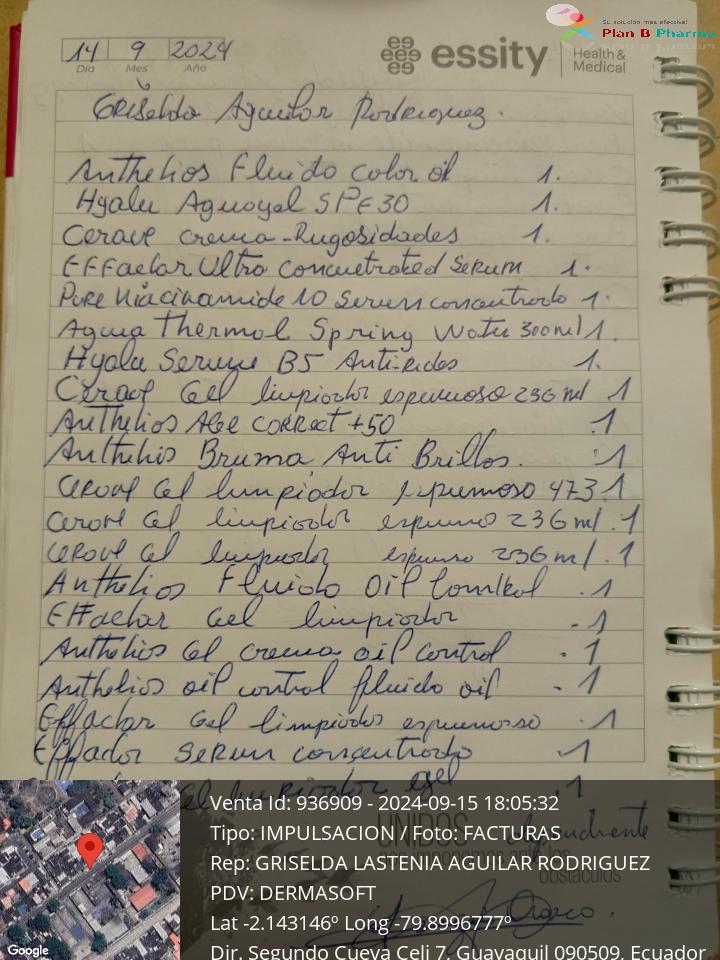 Su solución mas efectiva!
Plan B Pharma
14 9 2024
Día Mes Año
essity Health & Medical
Griselda Aguilar Rodriguez.
Anthelios Fluido color oil 1.
Hyalu Aguagel SPF 30 1.
Cerave crema-Rugosidades 1.
EFFaclar Ultra Concentrated Serum 1.
Pure Niacinamide 10 Serum concentrado 1.
Agua Thermal Spring Water 300 ml 1.
Hyalu Serum B5 Anti-Rides 1.
Cerave Gel limpiador espumoso 236 ml 1
Anthelios Age correct +50 .1
Anthelios Bruma Anti Brillos. .1
Cerave Gel limpiador espumoso 473.1
Cerave Gel limpiador espumo 236 ml .1
Cerave Gel limpiador espumo 236 ml .1
Anthelios Fluido Oil Control .1
Effaclar Gel limpiador .1
Anthelios Gel crema oil control .1
Anthelios oil control fluido oil .1
Effaclar Gel limpiador espumoso .1
Effaclar Serum concentrado .1
Gel limpiador .1
Venta Id: 936909 - 2024-09-15 18:05:32
UNIDOS
Tipo: IMPULSACION / Foto: FACTURAS
Rep: GRISELDA LASTENIA AGUILAR RODRIGUEZ
obstáculos
PDV: DERMASOFT
Lat -2.143146º Long -79.8996777º
Orozco.
Dir. Segundo Cueva Celi 7, Guayaquil 090509, Ecuador
Google